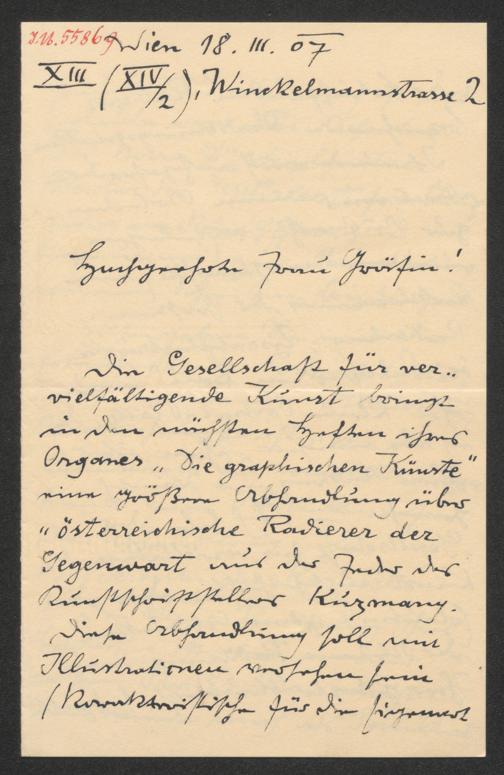 J.N. 55869
Wien 18. III. 07
XIII (XIV/2), Winckelmannstrasse 2
Hochgeehrte Frau Gräfin!
Die Gesellschaft für ver„
vielfältigende Kunst bringt
in den nächsten Heften ihres
Organes „Die graphischen Künste“
eine größere Abhandlung über
„österreichische Radierer der
Gegenwart aus der Feder des
Kunstschriftstellers Kuzmany.
Diese Abhandlung soll mit
Illustrationen versehen sein
(Karakteristische für die Eigenart